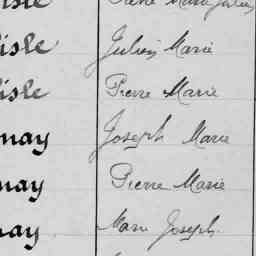 isle Marie Julien
isle Julien Marie
isle Pierre Marie
nay Joseph Marie
nay Pierre Marie
nay Marie Joseph